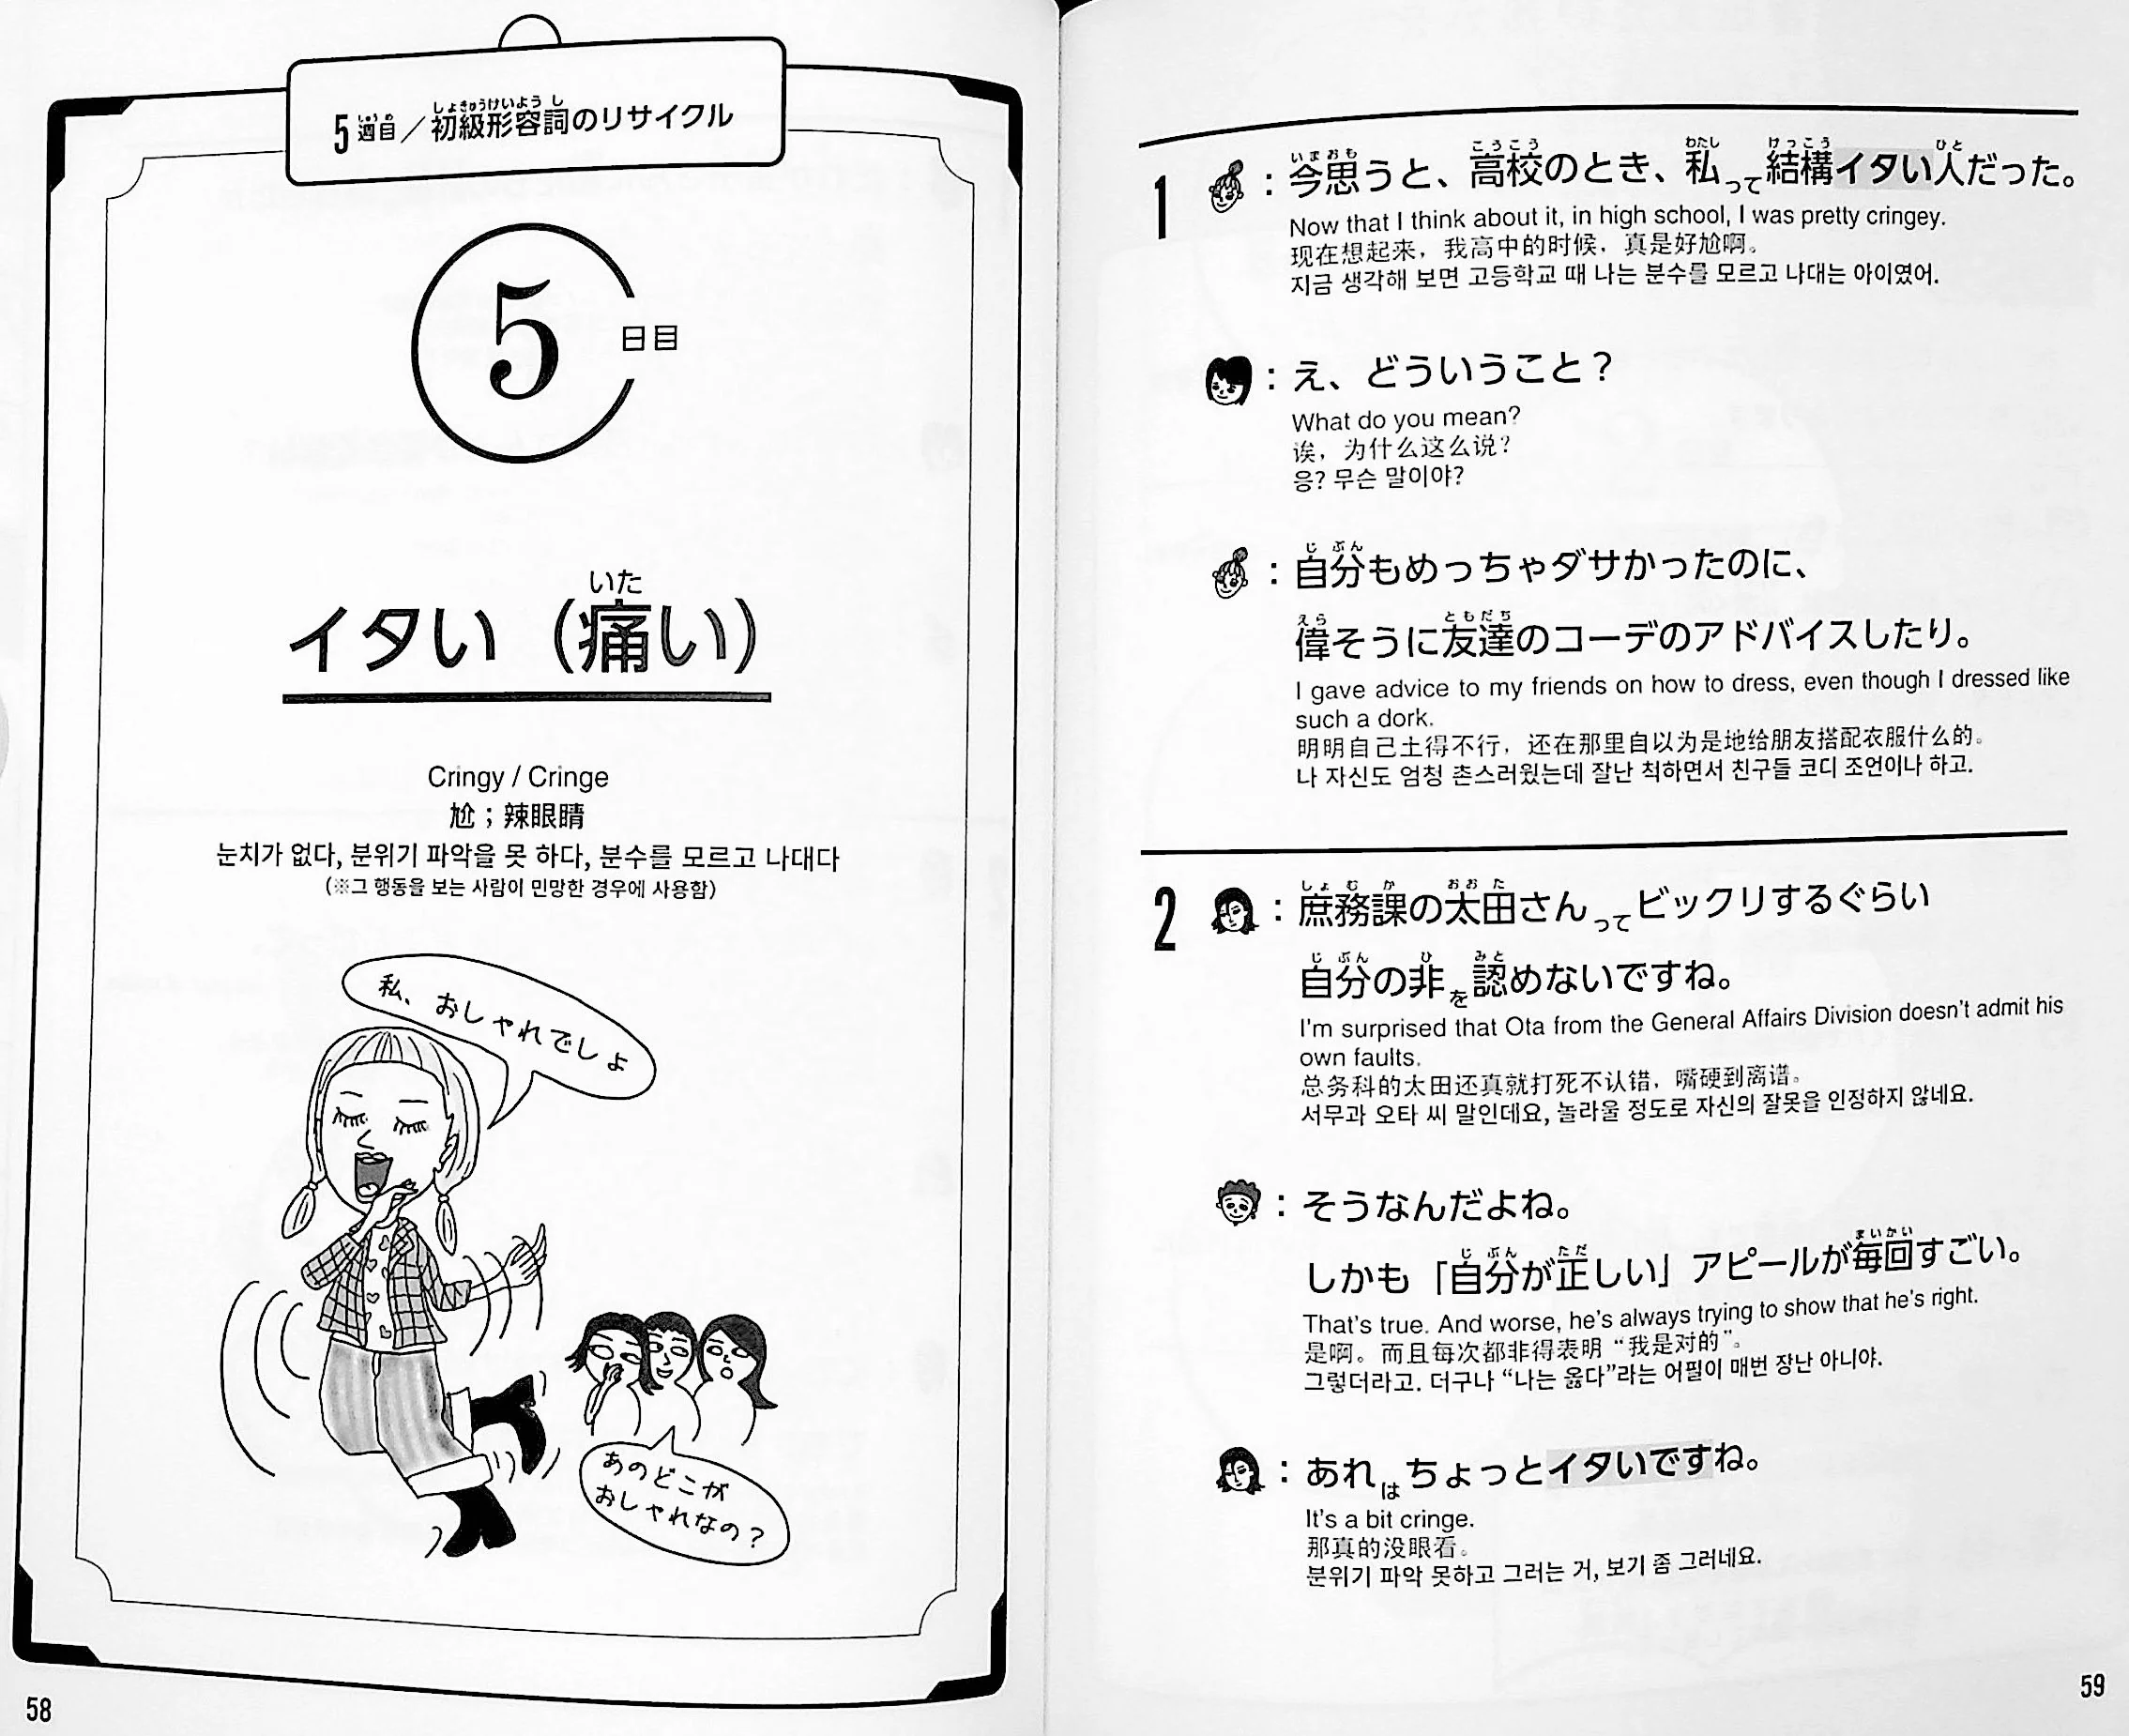 5週目／初級形容詞のリサイクル
しゅうめ しょきゅうけいようし
5日目
いた
イタい（痛い）
Cringy / Cringe
尬；辣眼睛
눈치가 없다, 분위기 파악을 못 하다, 분수를 모르고 나대다
(※그 행동을 보는 사람이 민망한 경우에 사용함)
私、おしゃれでしょ
あのどこが
おしゃれなの？
58
いまおも こうこう わたし けっこう ひと
1 ：今思うと、高校のとき、私って結構イタい人だった。
Now that I think about it, in high school, I was pretty cringey.
现在想起来，我高中的时候，真是好尬啊。
지금 생각해 보면 고등학교 때 나는 분수를 모르고 나대는 아이였어.
：え、どういうこと？
What do you mean?
诶，为什么这么说？
응? 무슨 말이야?
じぶん
：自分もめっちゃダサかったのに、
えら ともだち
偉そうに友達のコーデのアドバイスしたり。
I gave advice to my friends on how to dress, even though I dressed like
such a dork.
明明自己土得不行，还在那里自以为是地给朋友搭配衣服什么的。
나 자신도 엄청 촌스러웠는데 잘난 척하면서 친구들 코디 조언이나 하고.
しょむか おおた
2 ：庶務課の太田さんってビックリするぐらい
じぶん ひ みと
自分の非を認めないですね。
I'm surprised that Ota from the General Affairs Division doesn't admit his
own faults.
总务科的太田还真就打死不认错，嘴硬到离谱。
서무과 오타 씨 말인데요, 놀라울 정도로 자신의 잘못을 인정하지 않네요.
：そうなんだよね。
じぶん ただ まいかい
しかも「自分が正しい」アピールが毎回すごい。
That's true. And worse, he's always trying to show that he's right.
是啊。而且每次都非得表明“我是对的”。
그렇더라고. 더구나 “나는 옳다”라는 어필이 매번 장난 아니야.
：あれはちょっとイタいですね。
It's a bit cringe.
那真的没眼看。
분위기 파악 못하고 그러는 거, 보기 좀 그러네요.
59